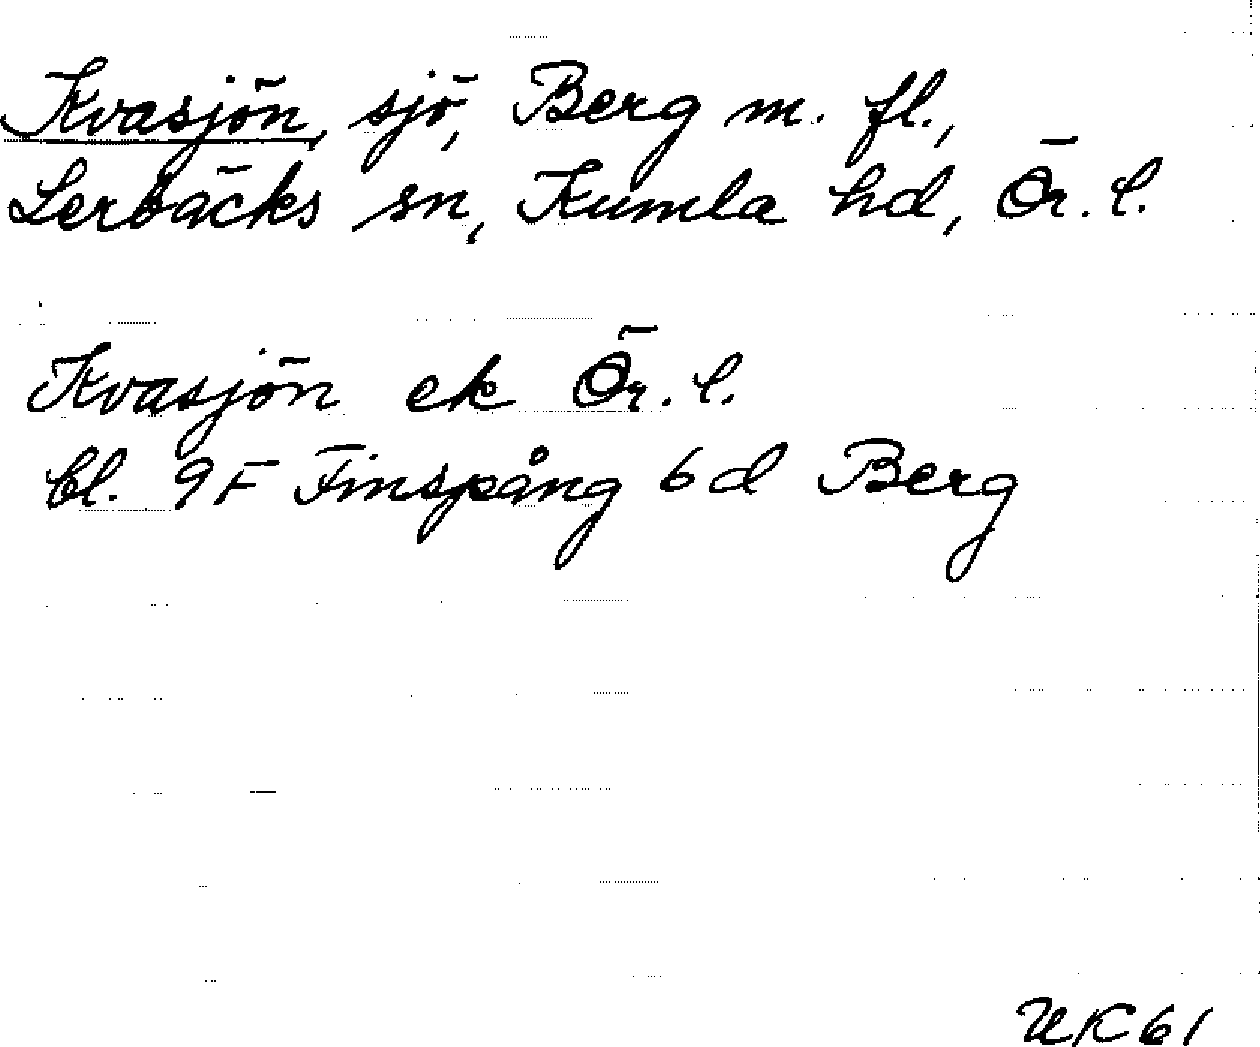 Kvasjön, sjö, Berg m. fl.,
Lerbäcks sn, Kumla hd, Ör. l.
Kvasjön ek Ör. l.
bl. 9F Finspång 6d Berg
UK61